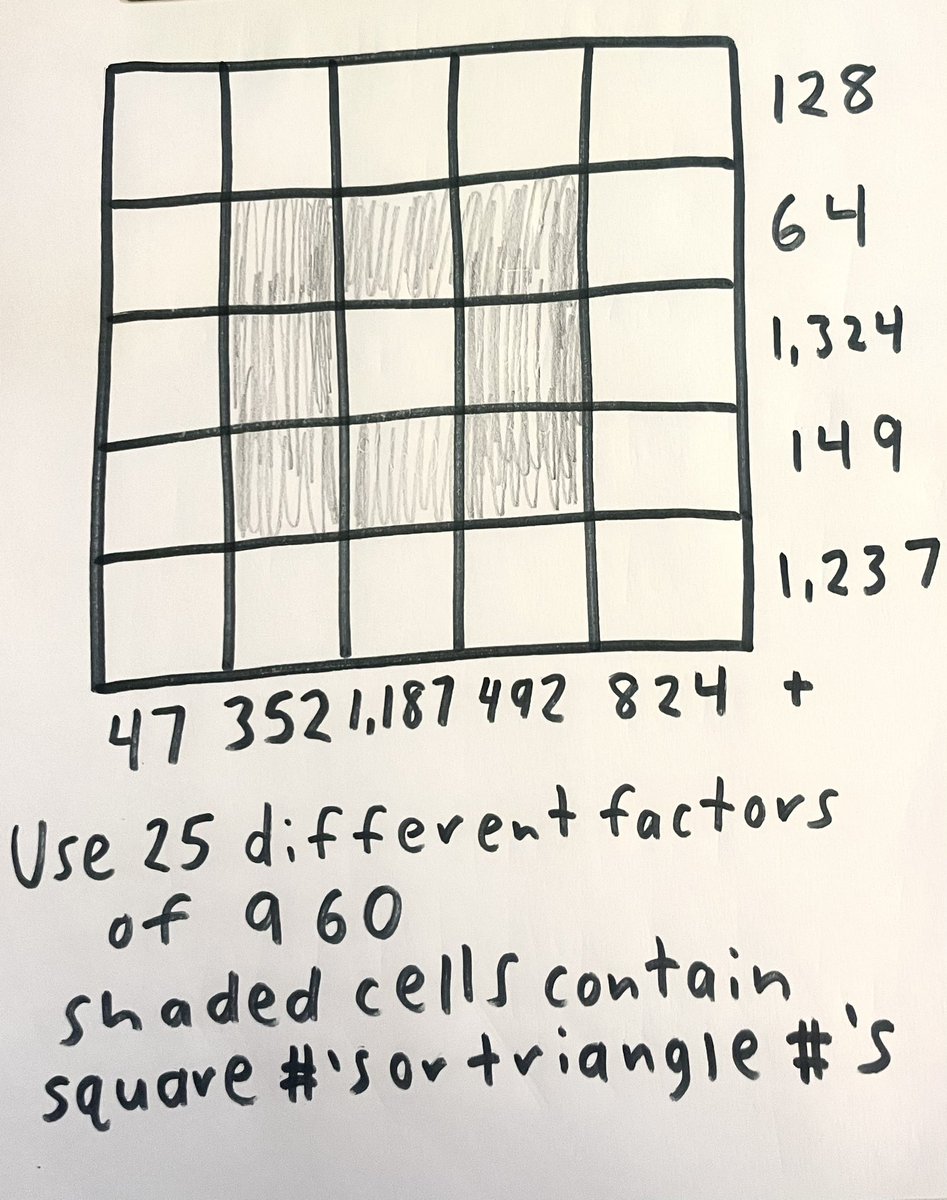 128
64
1,324
149
1,237
47 352 1,187 492 824 +
Use 25 different factors
of 960
shaded cells contain
square #'s or triangle #'s